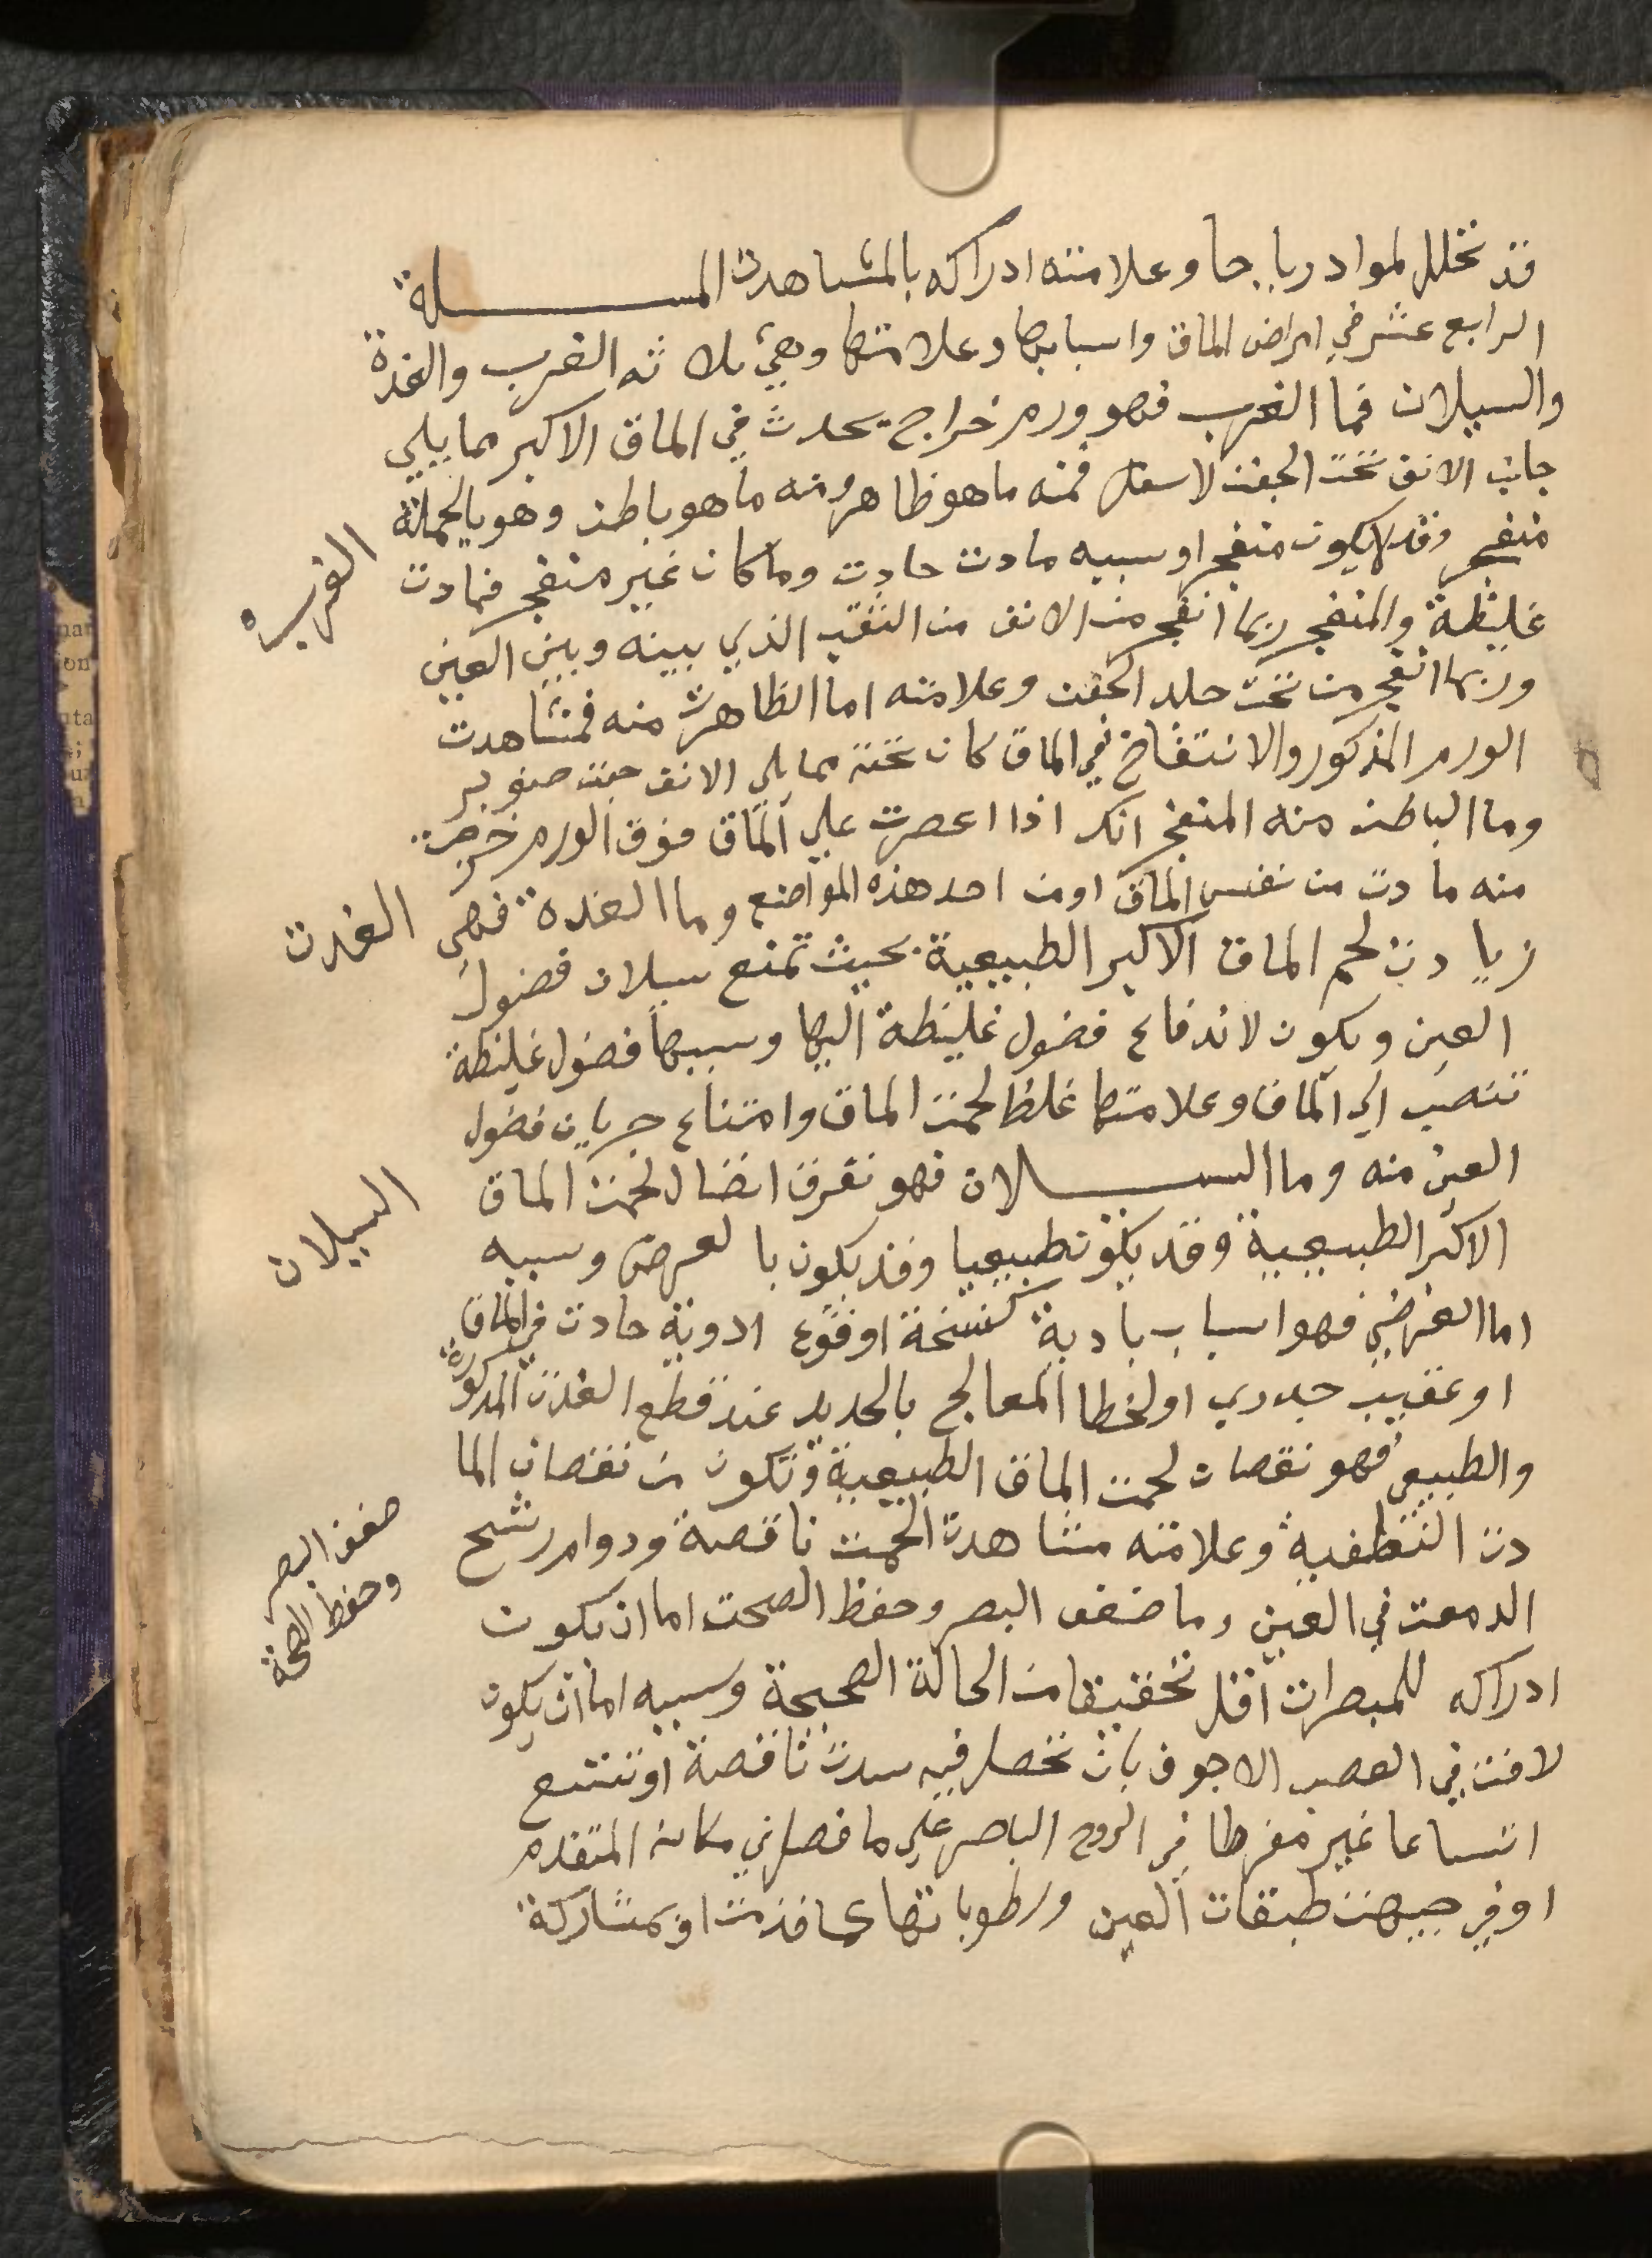 قد تخلل لمواد رياحا وعلامته ادراكه بالمشاهدت المسلة
الرابع عشر في امراض الماق واسبابها وعلامتها وهي ثلاثه الغرب والغدة
والسيلان فما الغرب فهو ورم خراج يحدث في الماق الاكبر مما يلي
جانب الانف تحت الجفن لاسفل فمنه ما هو ظاهر ومنه ما هو باطن وهو بالجملة
منفجر وقد لا يكون منفجرا وسببه مادت حادت وما كان غير منفجر فمادت
الغرب
غليظة والمنفجر ربما انفجر من الانف من الثقب الذي بينه وبين العين
وربما انفجر من تحت جلد الجفن وعلامته اما الظاهرت منه فمشاهدت
الورم المذكور والانتفاخ في الماق كان تحته مما يلي الانف حبت صنوبر
وما الباطن منه المنفجر انك اذا اعصرت علي الماق فوق الورم خرجت
منه مادت من نفس الماق او من احد هذه المواضع وما الغدة فهي
الغدت
زيادت لحم الماق الاكبر الطبيعية بحيث تمنع سيلان فضول
العين ويكون لاندفاع فضول غليظة اليها وسببها فضول غليظة
تنصب الي الماق وعلامتها غلظ لحمت الماق وامتناع جريان فضول
العين منه وما السيلان فهو تفرق اتصال لحمت الماق
السيلان
الاكبر الطبيعية وقد يكون طبيعيا وقد يكون بالعرض وسببه
اما العرضي فهو اسباب بادية كنسخة او وقوع ادوية حادت في الماق
او عقيب جدري او لخطا المعالج بالحديد عند قطع الغدت المذكورة
والطبيعي فهو نقصان لحمت الماق الطبيعية وتكون من نقصان الما
دت النطفية وعلامته مشاهدت الحمت ناقصة ودوام رشح
الدمعت في العين وما ضعف البصر وحفظ الصحت اما ان يكون
ضعف البصر
وحفظ الصحة
ادراكه للمبصرات اقل تحقيقا من الحالة الصحيحة وسببه اما ان يكون
لافت في العصب الاجوف بان تحصل فيه سدت ناقصة او تتسع
اتساعا غير مفرطا في الروح الباصر علي ما فصل في مكانه المتقدم
او في جيهت طبقات العين ورطوباتها كما قدمت او بمشاركة